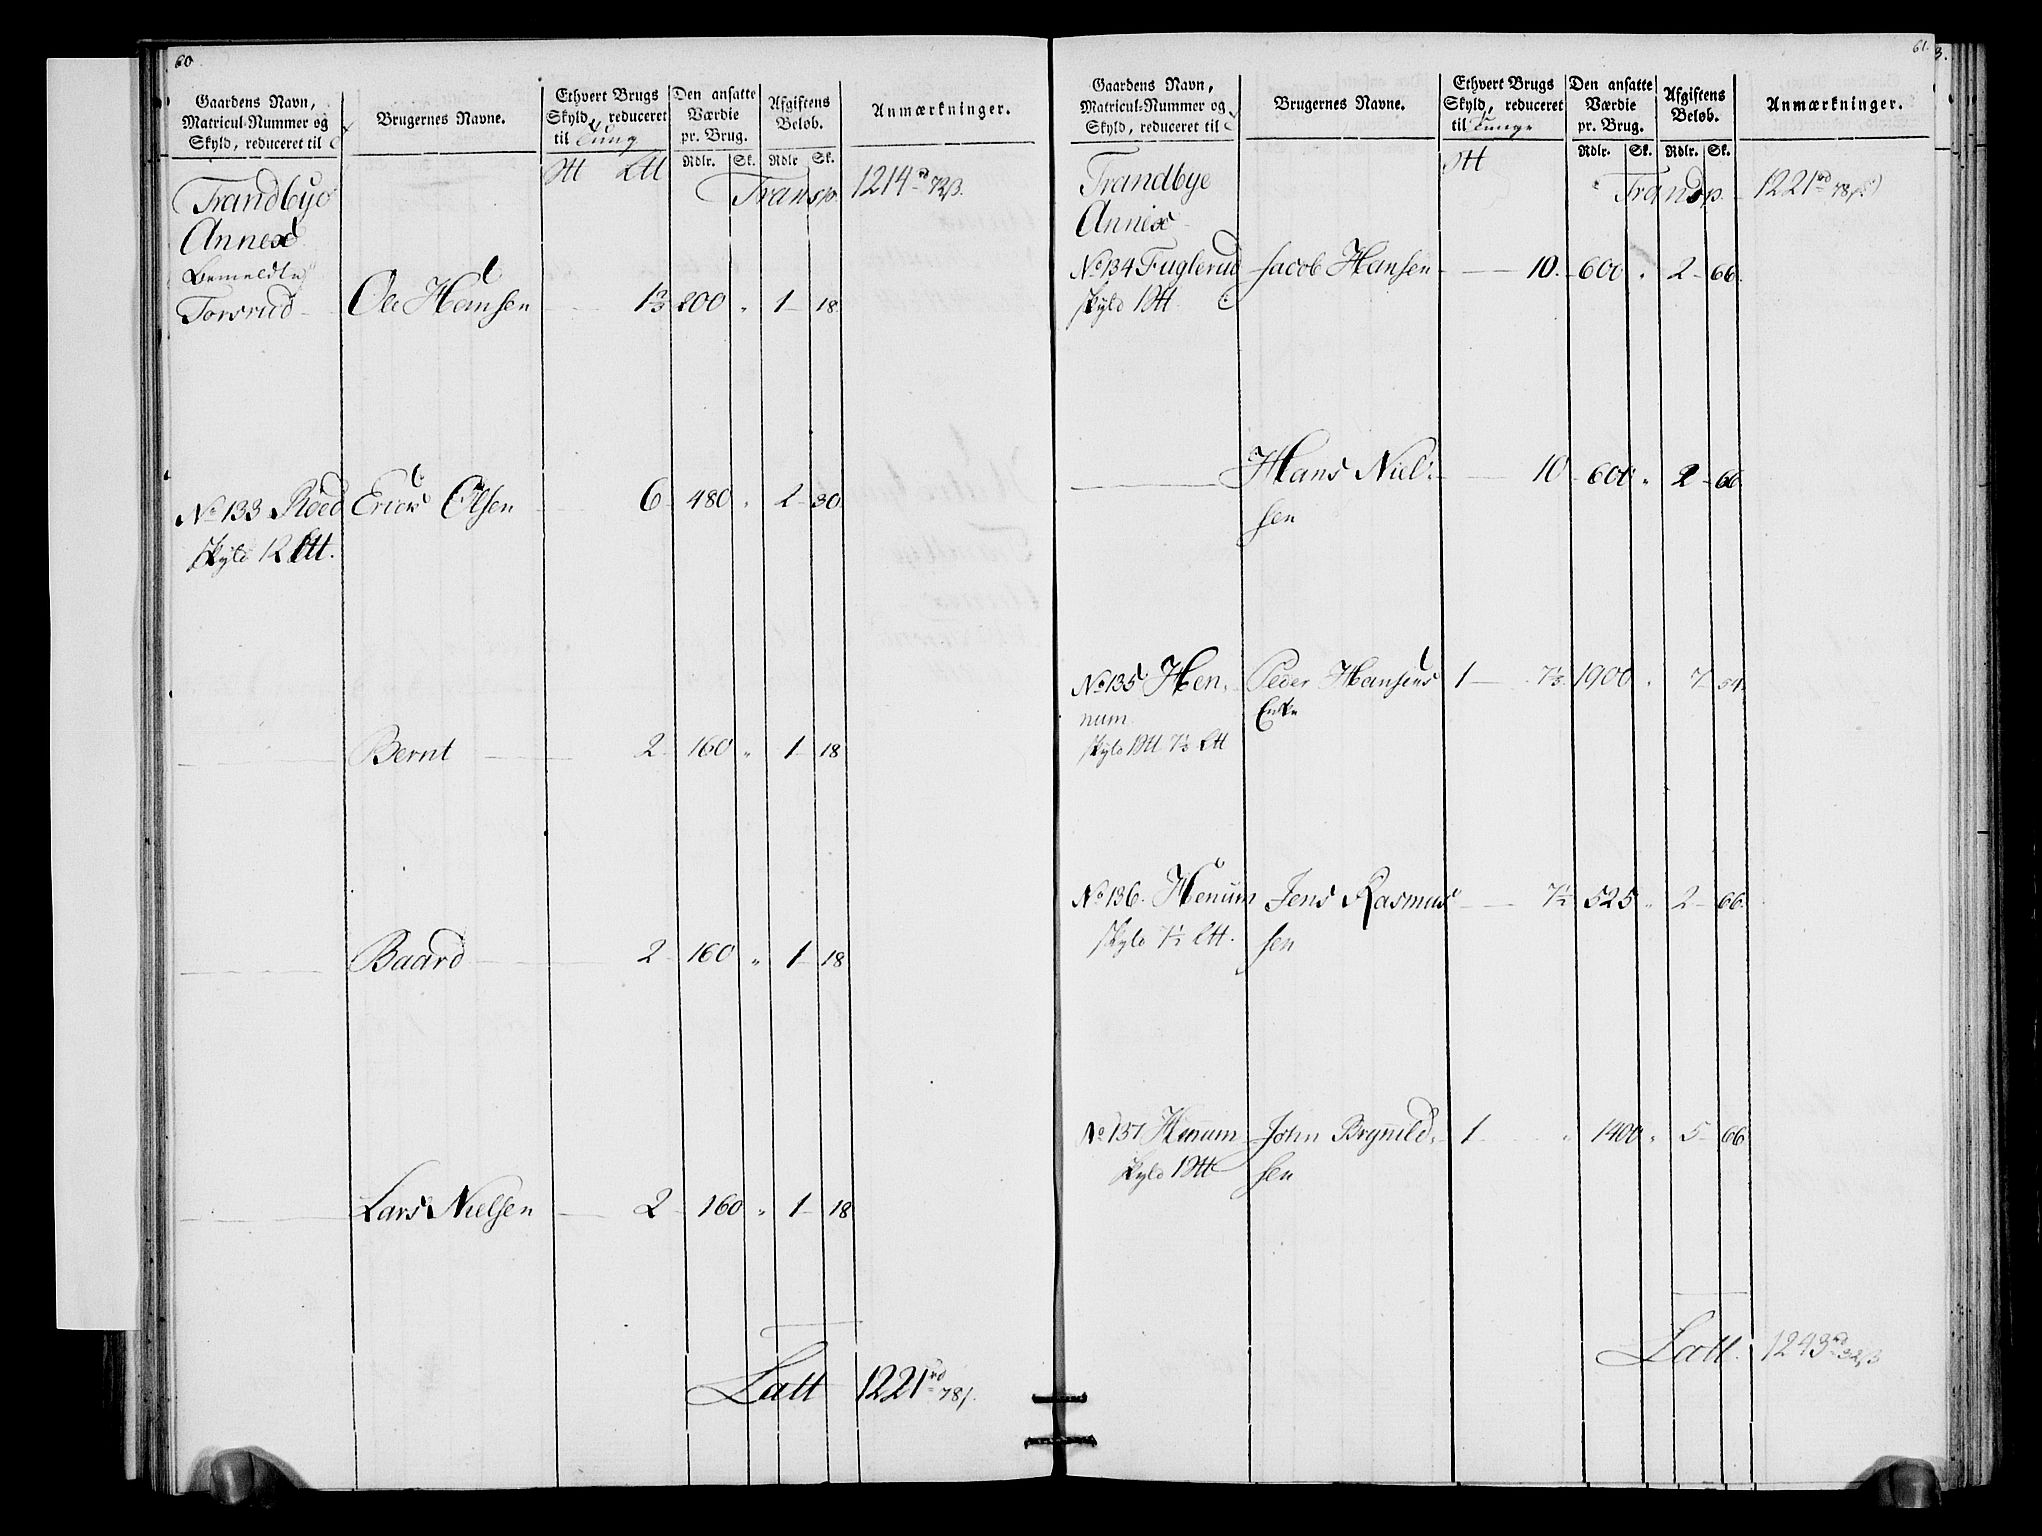 60
Gaardens Navn, Matricul-Nummer og Skyld, reduceret til
Brugernes Navne.
Ethvert Brugs Skyld, reduceret til Tung
Den ansatte Værdie pr. Brug.
Afgiftens Beløb.
Anmærkninger.
Rdlr. Sk. Rdlr Sk.
Trandbye Transp. 1214 rd 72 ß.
Annex
Bemeldte
Torsrud Ole Hansen 200 " 1 18
No 133 Röed Erick Olsen 6 480 " 2 30
Skyld 12 Ltt.
Bernt 2 160 " 1 18
Baard 2 160 " 1 18
Lars Nielsen 2 160 " 1 18
Latt 1221 rd 78 ß.
61.
Gaardens Navn, Matricul-Nummer og Skyld, reduceret til
Brugernes Navne.
Ethvert Brugs Skyld, reduceret til Tunge
Den ansatte Værdie pr. Brug.
Afgiftens Beløb.
Anmærkninger.
Rdlr. Sk. Rdlr. Sk.
Trandbye Transp. 1221 rd 78 ß
Annex
No 134 Fuglerud Jacob Hansen 10. 600 " 2 66.
Skyld 1
Hans Niel- 10 600 " 2 66
sen
No 135 Hen- Peder Hansens 1 7⅓ 1900 " 7 54.
num Enke
Skyld 1 7⅓ Ltt
No 136. Henum Jens Rasmus 7½ 525 " 2 66.
Skyld 7½ Ltt. sen
No 137 Henum John Brynild- 1 " 1400 " 5 66
Skyld 1 sen
Latt. 1243 rd 32 ß